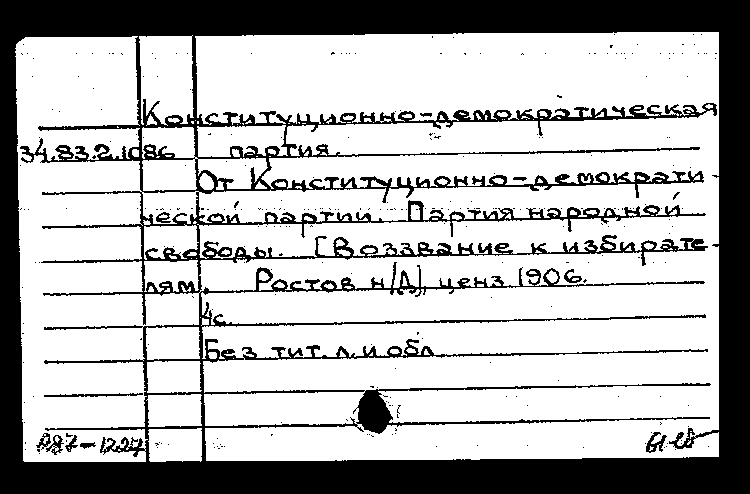 Конституционно-демократическая
34.83.2.1086 партия.
От Конституционно-демократи-
ческой партии. Партия народной
свободы. [Воззвание к избирате-
лям]. Ростов н/Д, ценз 1906.
4с.
Без тит. л. и обл.
Р87-1227